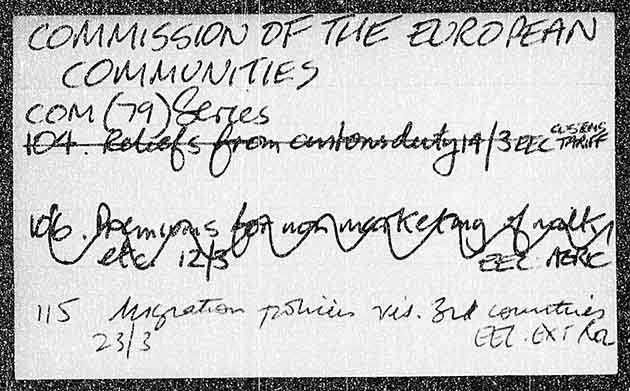 COMMISSION OF THE EUROPEAN
COMMUNITIES
COM (79) Series
104. Reliefs from customs duty 14/3 EEC CUSTOMS TARIFF
106. Premiums for non marketing of milk,
etc. 12/3 EEC. AGRIC
115 Migration policies vis. 3rd countries
23/3 EEC. EXT Rel